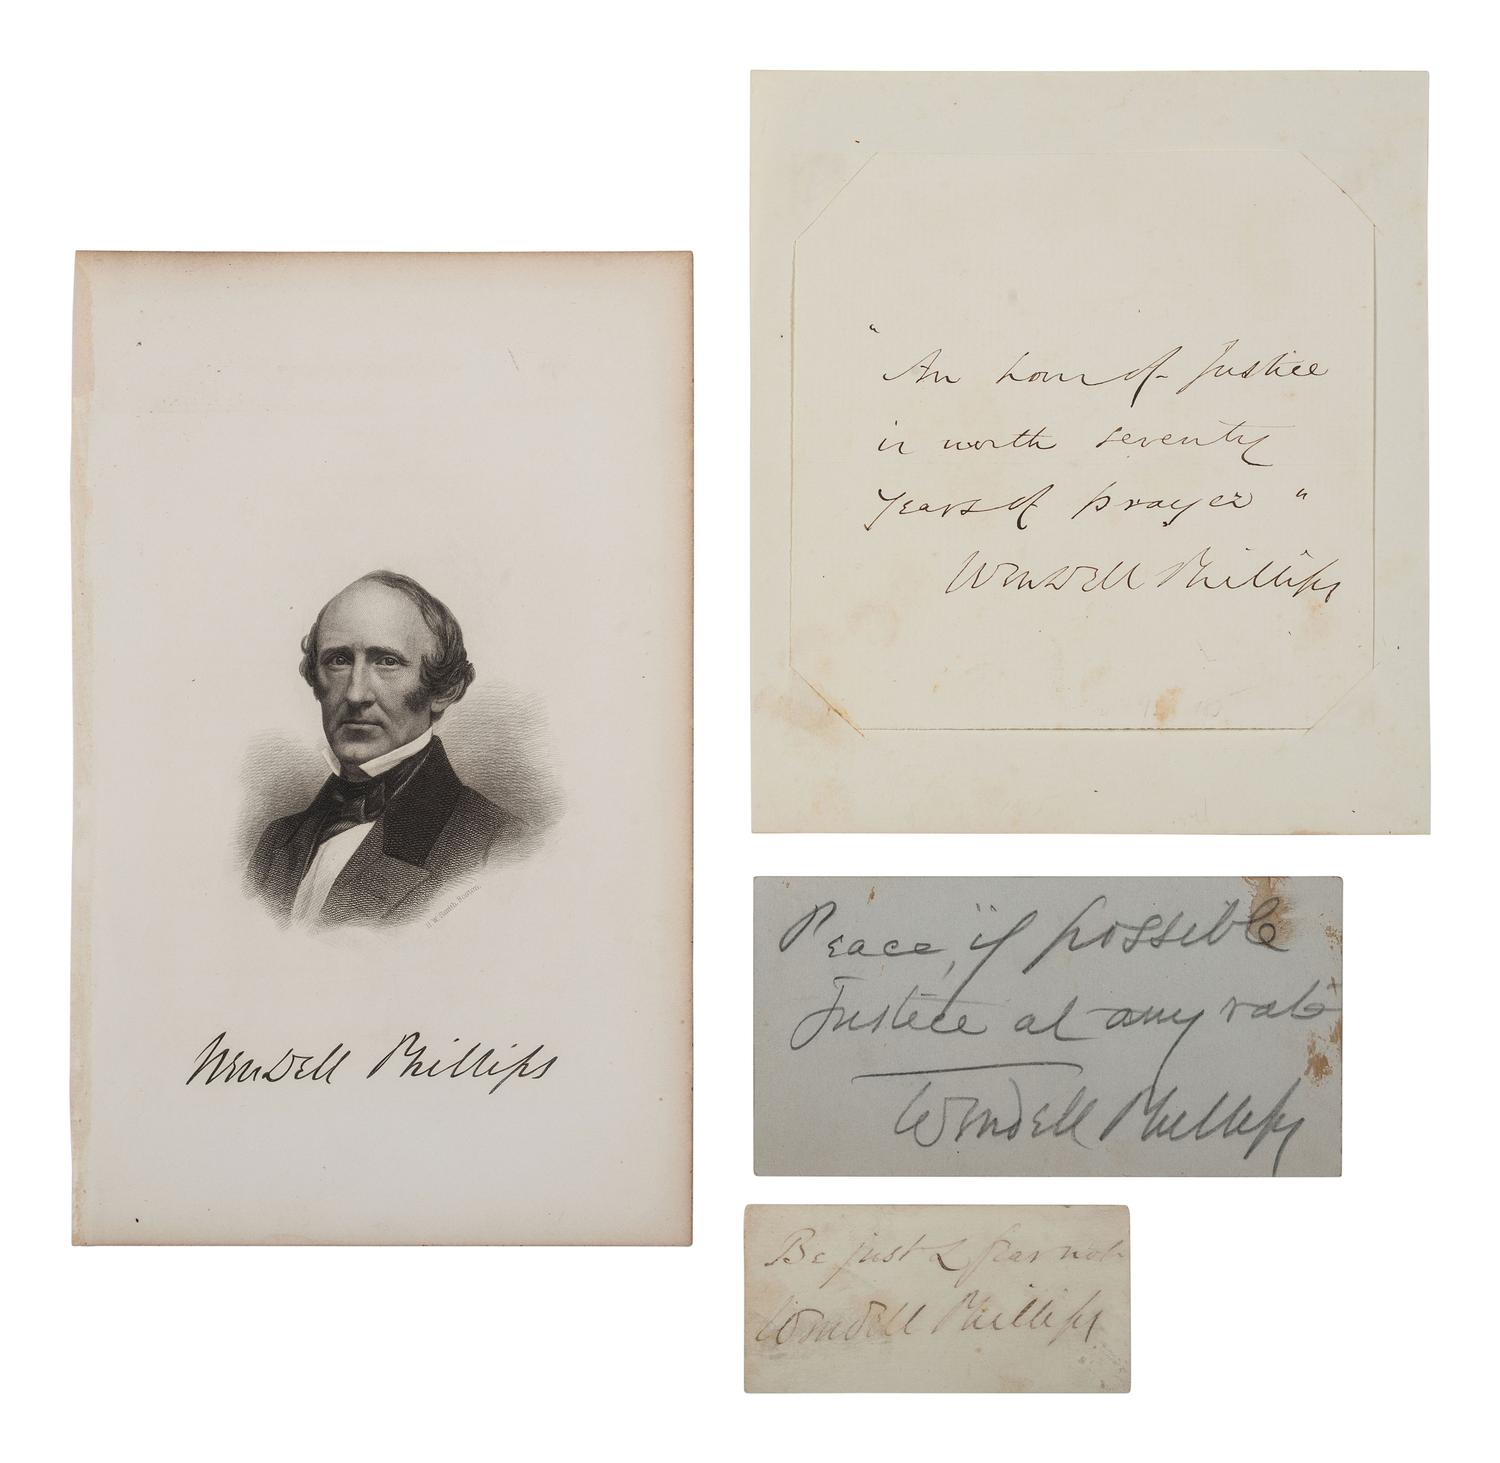 H.W. Smith, Boston.
Wendell Phillips
"An hour of Justice
is worth seventy
years of prayer"
Wendell Phillips
Peace, if possible
Justice at any rate
Wendell Phillips
Be just & fear not
Wendell Phillips